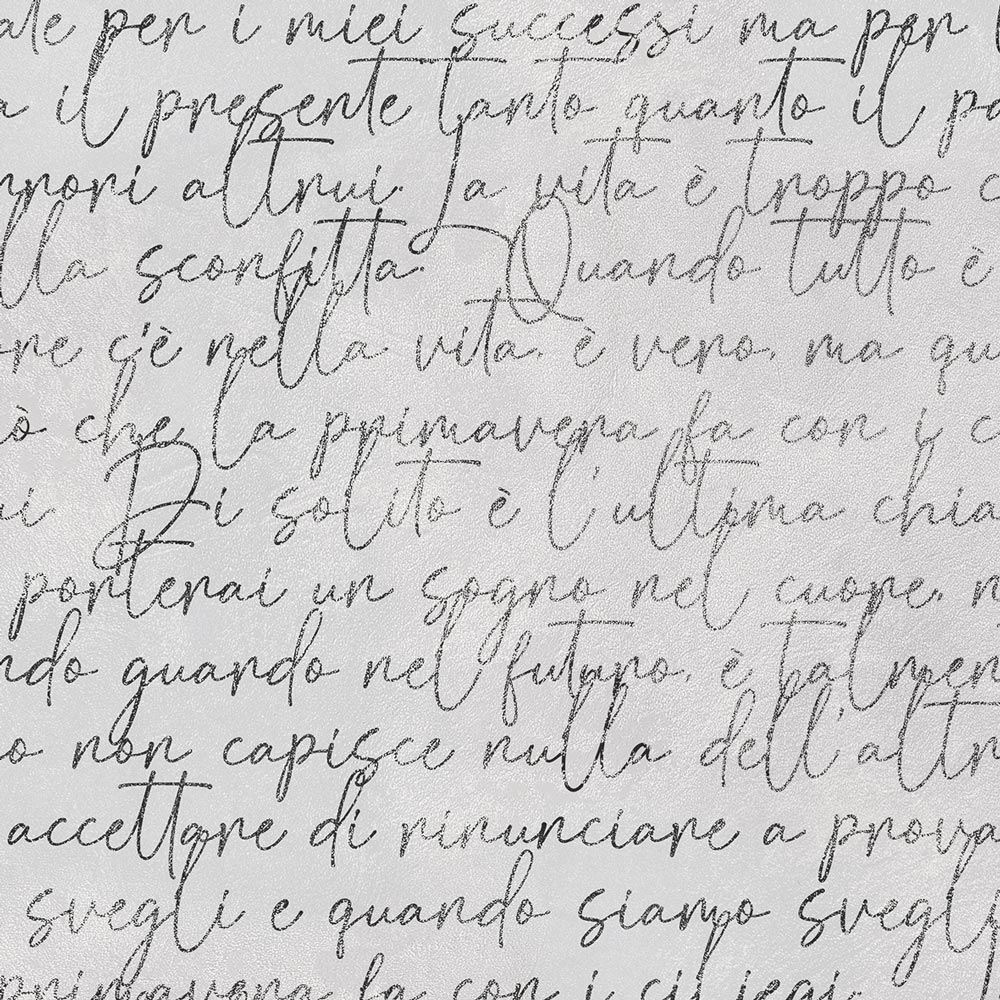 ale per i miei successi ma per
a il presente tanto quanto il pa
rrori altrui. La vita è troppo c
lla sconfitta. Quando tutto è
ore c'è nella vita, è vero, ma qu
iò che la primavera fa con i c
ai Di solito è l'ultima chia
porterai un sogno nel cuore, n
ndo guardo nel futuro, è talmen
o non capisce nulla dell'altr
accettare di rinunciare a prova
svegli e quando siamo svegli
primavera fa con i ciliegi.